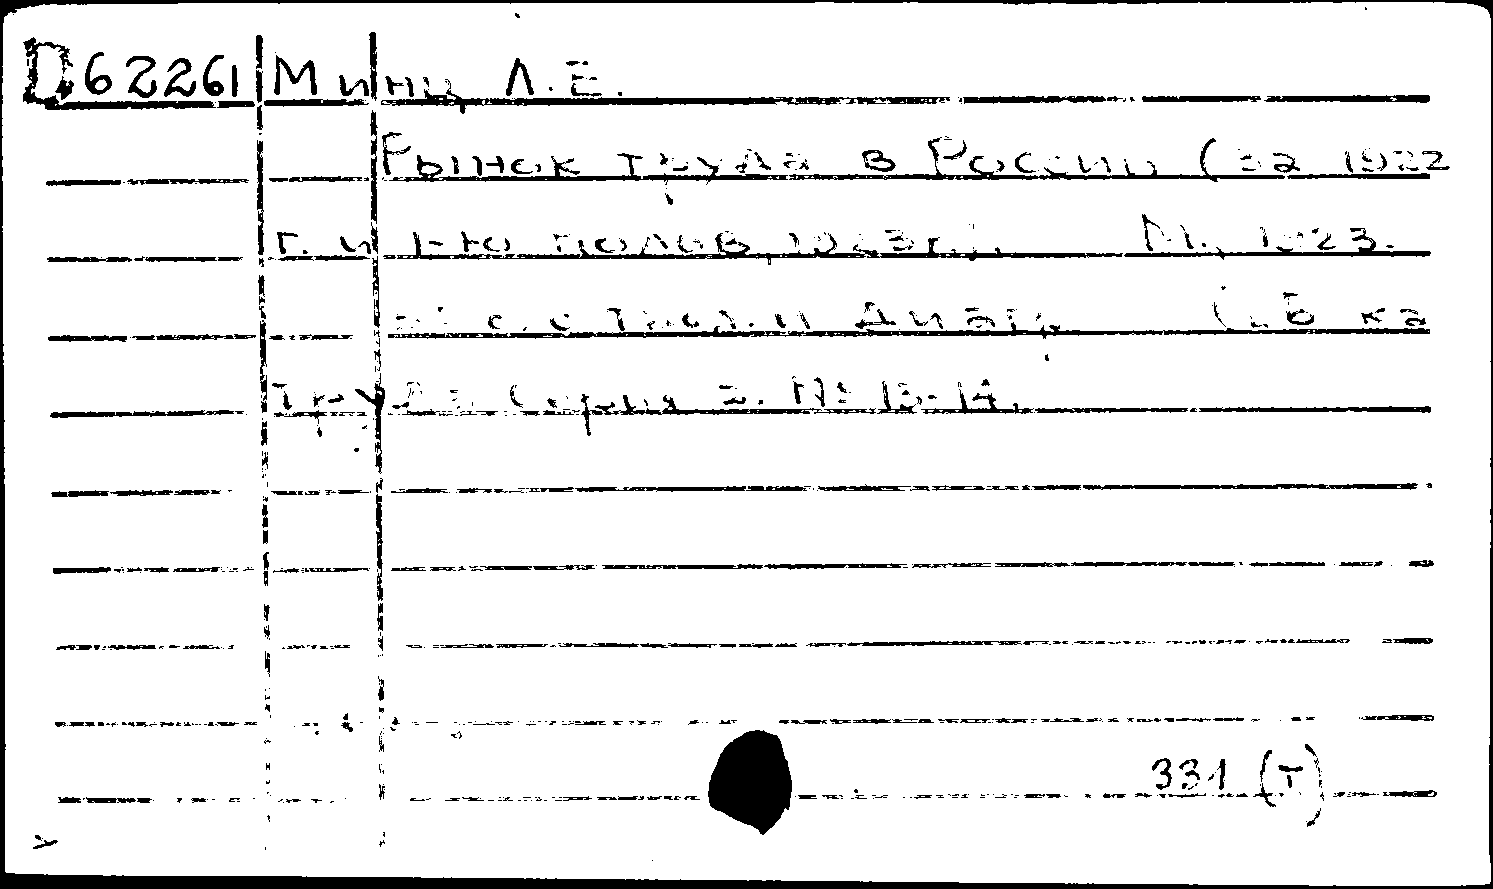 D62261 Минц, Л. Е.
Рынок труда в России (за 1922
г. и 1-ю полов. 1923 г.). М., 1923.
с. с табл. и диагр. (Б-ка
труда Серия 2. № 13-14.
331 (Т)